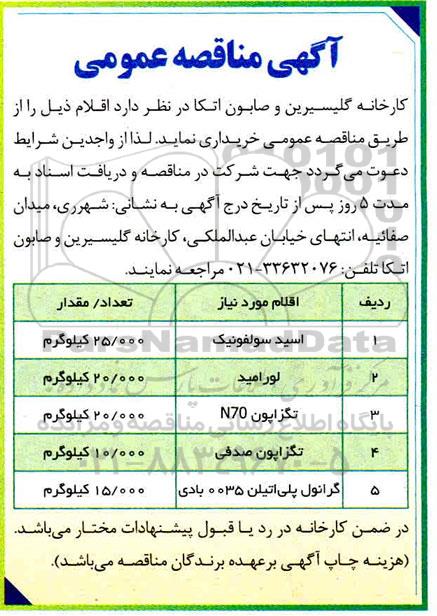 آگهی مناقصه عمومی
کارخانه گلیسیرین و صابون اتکا در نظر دارد اقلام ذیل را از
طریق مناقصه عمومی خریداری نماید. لذا از واجدین شرایط
دعوت می‌گردد جهت شرکت در مناقصه و دریافت اسناد به
مدت ۵ روز پس از تاریخ درج آگهی به نشانی: شهرری، میدان
صفائیه، انتهای خیابان عبدالملکی، کارخانه گلیسیرین و صابون
اتکا تلفن: ۳۳۶۳۲۰۷۶-۰۲۱ مراجعه نمایند.
ردیف اقلام مورد نیاز تعداد/ مقدار
۱ اسید سولفونیک ۲۵/۰۰۰ کیلوگرم
۲ لورامید ۲۰/۰۰۰ کیلوگرم
۳ تگزاپون N70 ۲۰/۰۰۰ کیلوگرم
۴ تگزاپون صدفی ۱۰/۰۰۰ کیلوگرم
۵ گرانول پلی‌اتیلن ۰۰۳۵ بادی ۱۵/۰۰۰ کیلوگرم
در ضمن کارخانه در رد یا قبول پیشنهادات مختار می‌باشد.
(هزینه چاپ آگهی برعهده برندگان مناقصه می‌باشد).
ParsNamadData
پایگاه اطلاع رسانی مناقصه و مزایده
۰۲۱-۸۸۳۴۹۶۷۰-۵